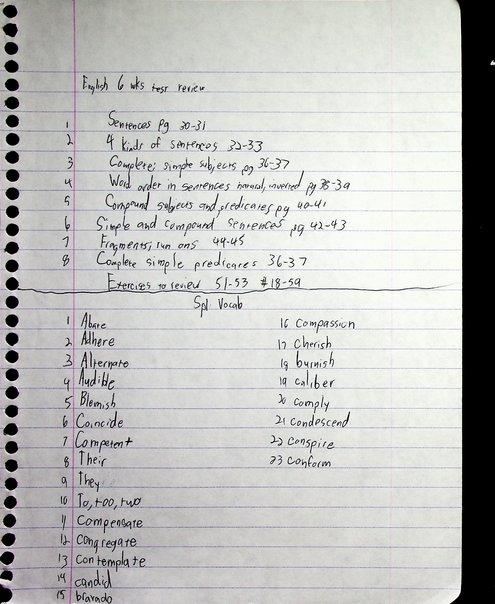 English 6 wks test review
1 Sentences pg 30-31
2 4 kinds of sentences 32-33
3 Complete; simple subjects pg 36-37
4 Word order in sentences natural, inverted pg 38-39
5 Compound subjects and predicates pg 40-41
6 Simple and compound sentences pg 42-43
7 Fragments; run ons 44-45
8 Complete simple predicates 36-37
Exercises to review 51-53 #18-59
Spl Vocab
1 Abate
2 Adhere
3 Alternate
4 Audible
5 Blemish
6 Coincide
7 Competent
8 Their
9 They
10 To, too, two
11 Compensate
12 Congregate
13 Contemplate
14 candid
15 bravado
16 Compassion
17 Cherish
18 burnish
19 caliber
20 comply
21 condescend
22 conspire
23 conform